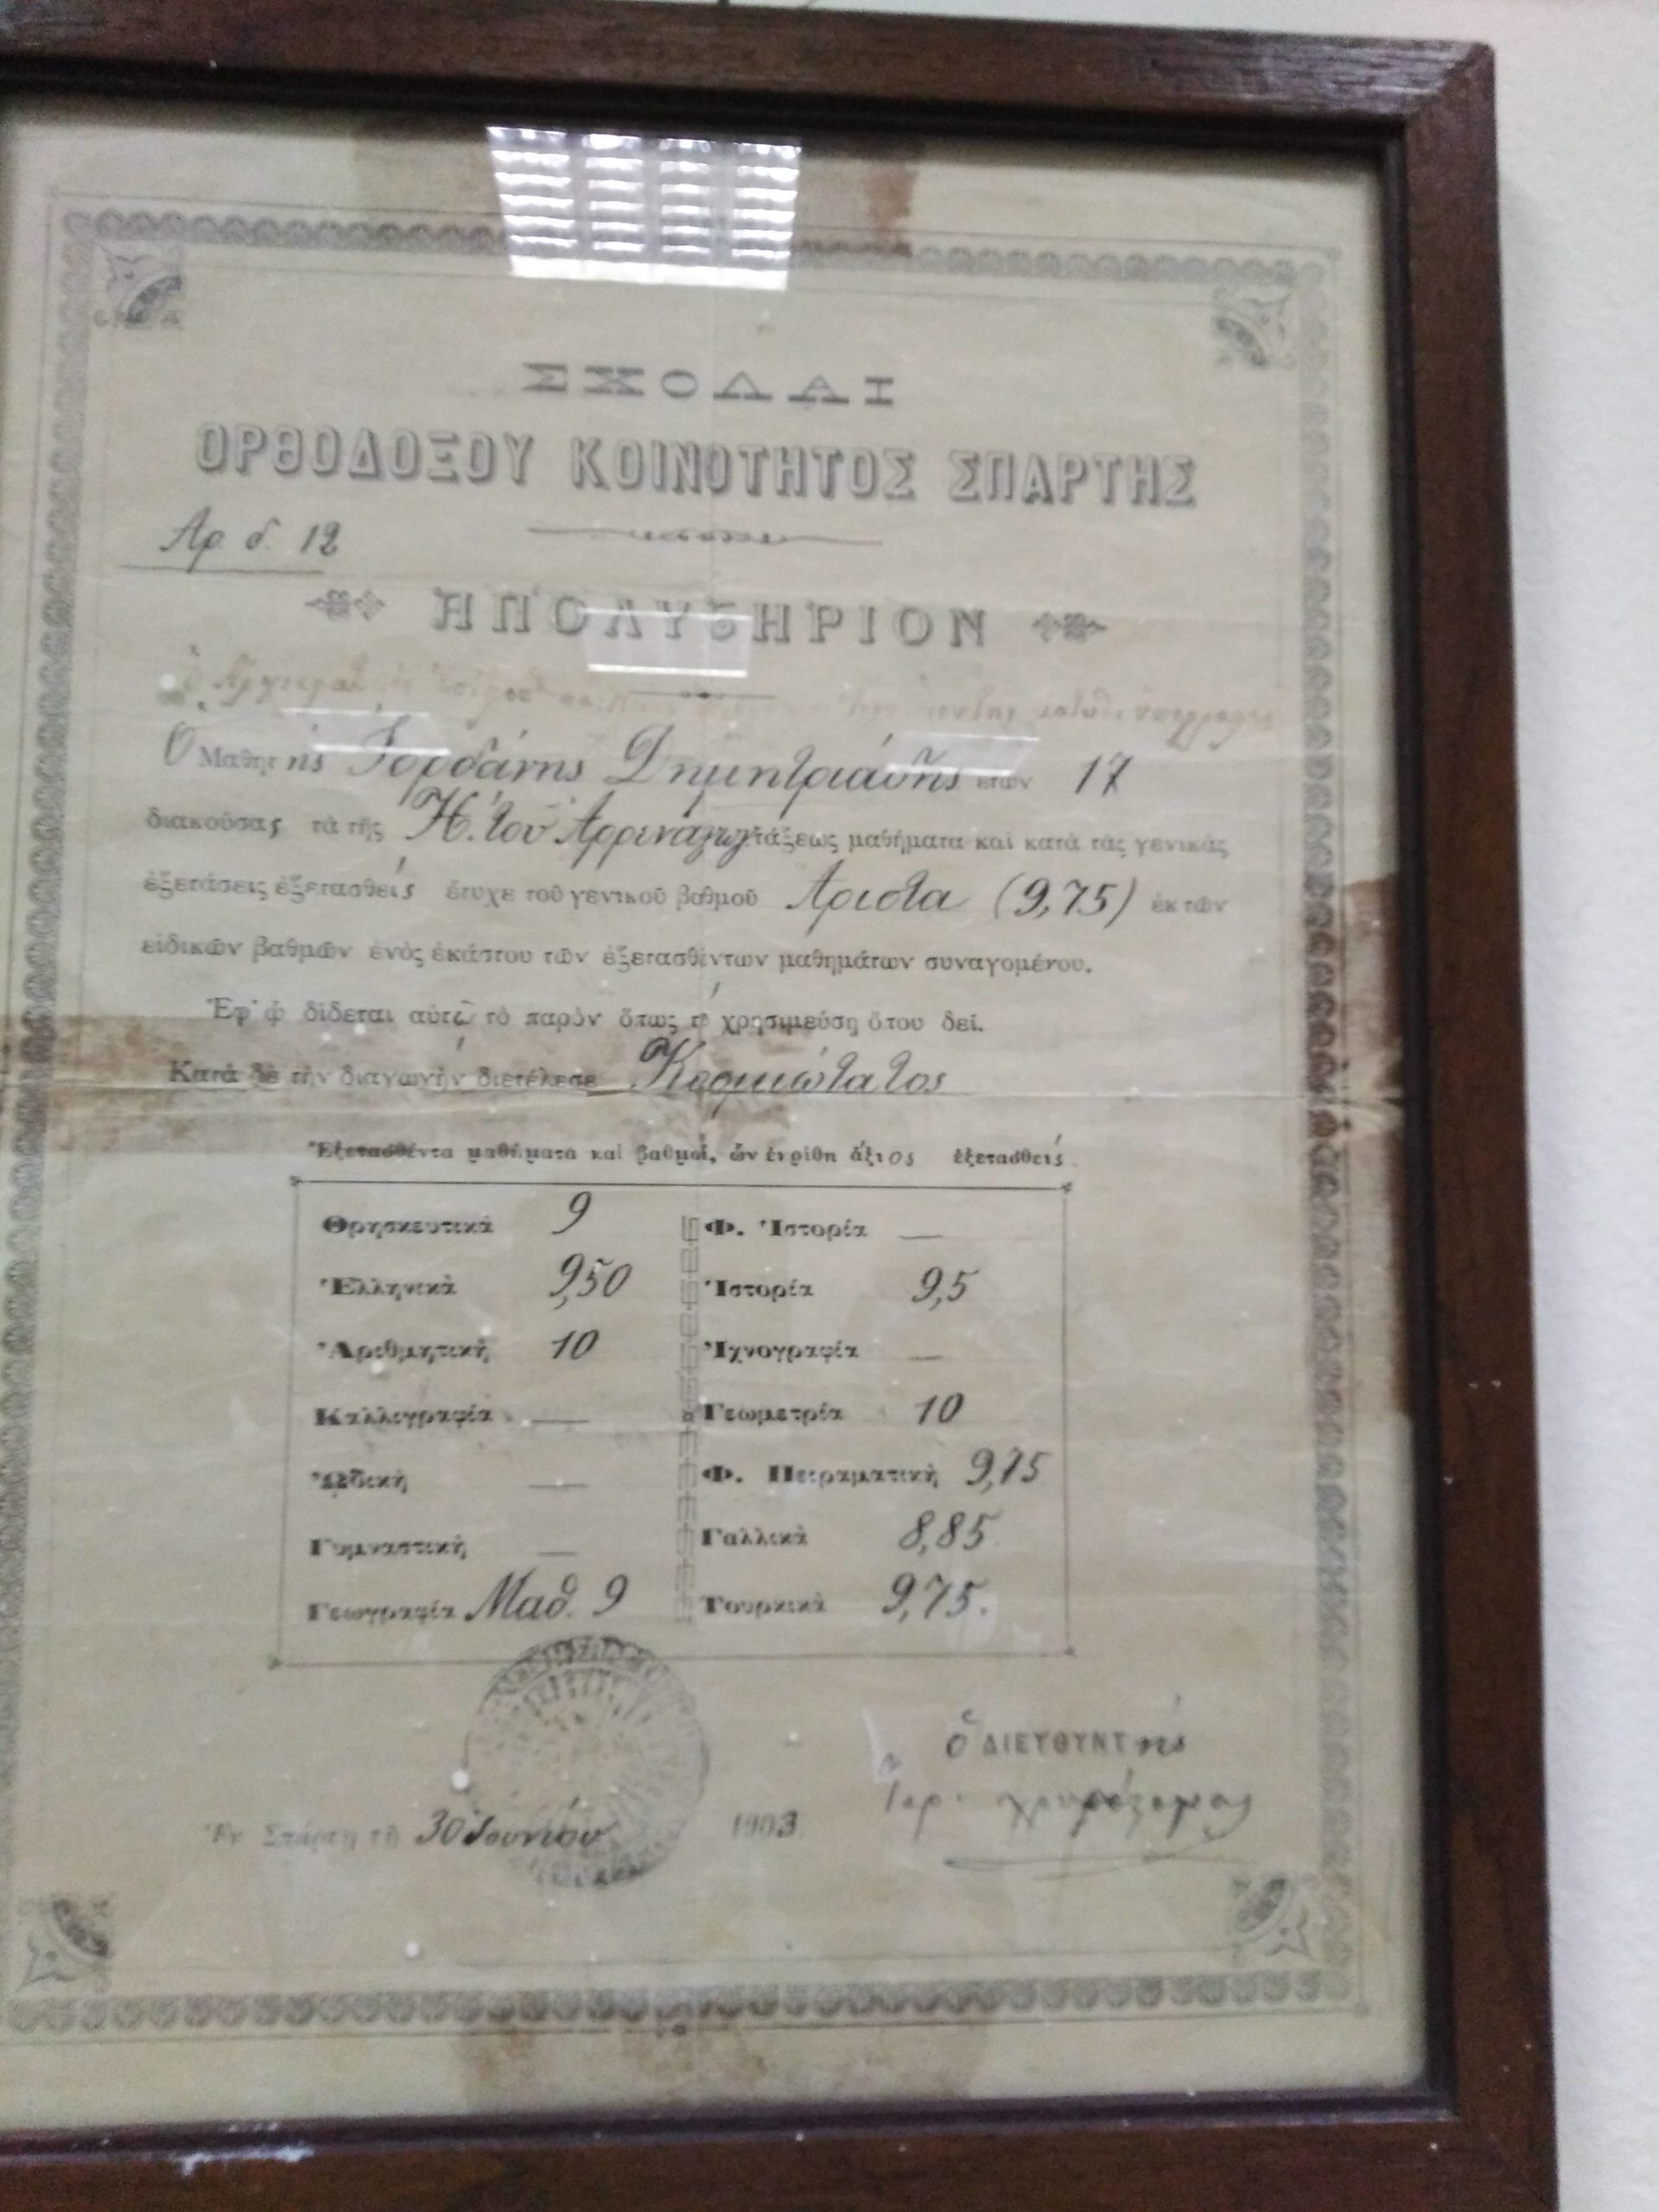 ΣΧΟΛΑΙ
ΟΡΘΟΔΟΞΟΥ ΚΟΙΝΟΤΗΤΟΣ ΣΠΑΡΤΗΣ
Αρ. δ. 12
ΑΠΟΛΥΤΗΡΙΟΝ
Ὁ Μαθητὴς Ἰορδάνης Δημητριάδης ἐτῶν 17
διακούσας τὰ τῆς Η΄. τοῦ Ἀρρεναγωγ. τάξεως μαθήματα καὶ κατὰ τὰς γενικὰς
ἐξετάσεις ἐξετασθεὶς ἔτυχε τοῦ γενικοῦ βαθμοῦ Ἄριστα (9,75) ἐκ τῶν
εἰδικῶν βαθμῶν ἑνὸς ἑκάστου τῶν ἐξετασθέντων μαθημάτων συναγομένου.
Ἐφ' ᾧ δίδεται αὐτῷ τὸ παρὸν ὅπως τῷ χρησιμεύσῃ ὅπου δεῖ.
Κατὰ δὲ τὴν διαγωγὴν διετέλεσε Κοσμιώτατος
Ἐξετασθέντα μαθήματα καὶ βαθμοί, ὧν ἐκρίθη ἄξιος ἐξετασθεὶς
Θρησκευτικὰ 9 Φ. Ἱστορία —
Ἑλληνικὰ 9,50 Ἱστορία 9,5
Ἀριθμητικὴ 10 Ἰχνογραφία —
Καλλιγραφία — Γεωμετρία 10
Ὠδικὴ — Φ. Πειραματικὴ 9,75
Γυμναστικὴ — Γαλλικὰ 8,85
Γεωγραφία Μαθ. 9 Τουρκικὰ 9,75.
Ὁ ΔΙΕΥΘΥΝΤὴς
Ἐν Σπάρτῃ τῇ 30 Ἰουνίου 1903